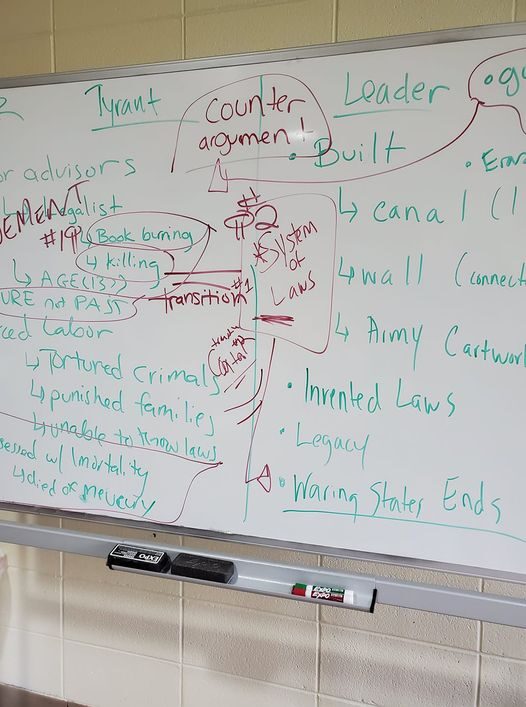 Tyrant
Counter
argument
Leader
or advisors
Legalist
EMENT
#1
Book burning
↳ killing
↳ AGE (13??)
URE not PAST
Transition #1
ced Labor
↳ Tortured Crimals
↳ punished families
↳ unable to know laws
sessed w/ Imortality
↳ died of mevcury
#2
*System
of
Laws
• Built
↳ canal (
↳ wall (connect
↳ Army Cartwor
• Invented Laws
• Legacy
• Waring States Ends
EXPO
EXPO
EXPO